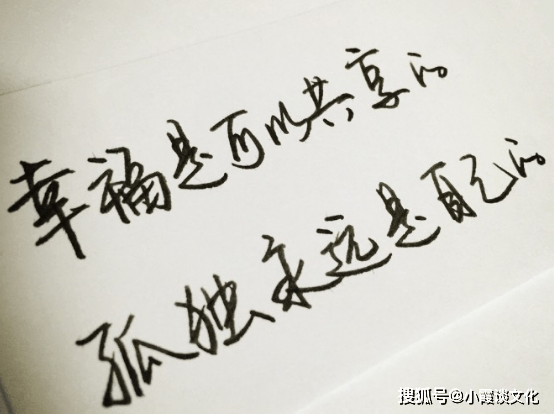 幸福是可以共享的
孤独永远是自己的
搜狐号@小霞谈文化